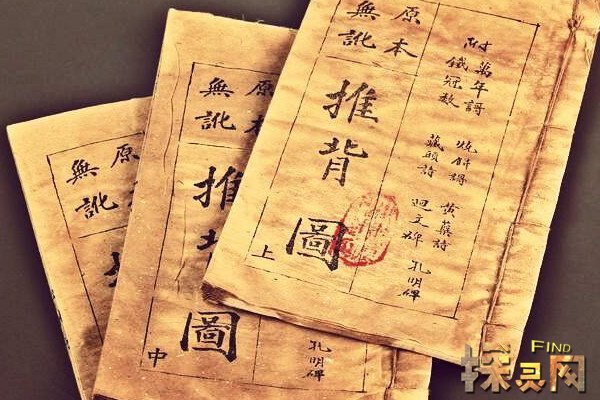 附萬年謌 燒餅謌 黃蘗詩 孔明碑
鐵冠数 藏頭詩 迴文碑
原本
無訛
推背圖
上
原本
無訛
推背圖
中
孔明碑
原本
無訛
FIND
探灵网